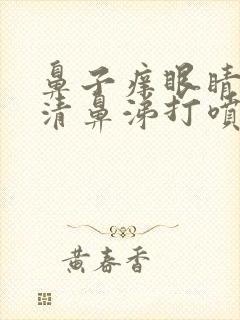 鼻子痒眼睛
清鼻涕打喷
黄春香